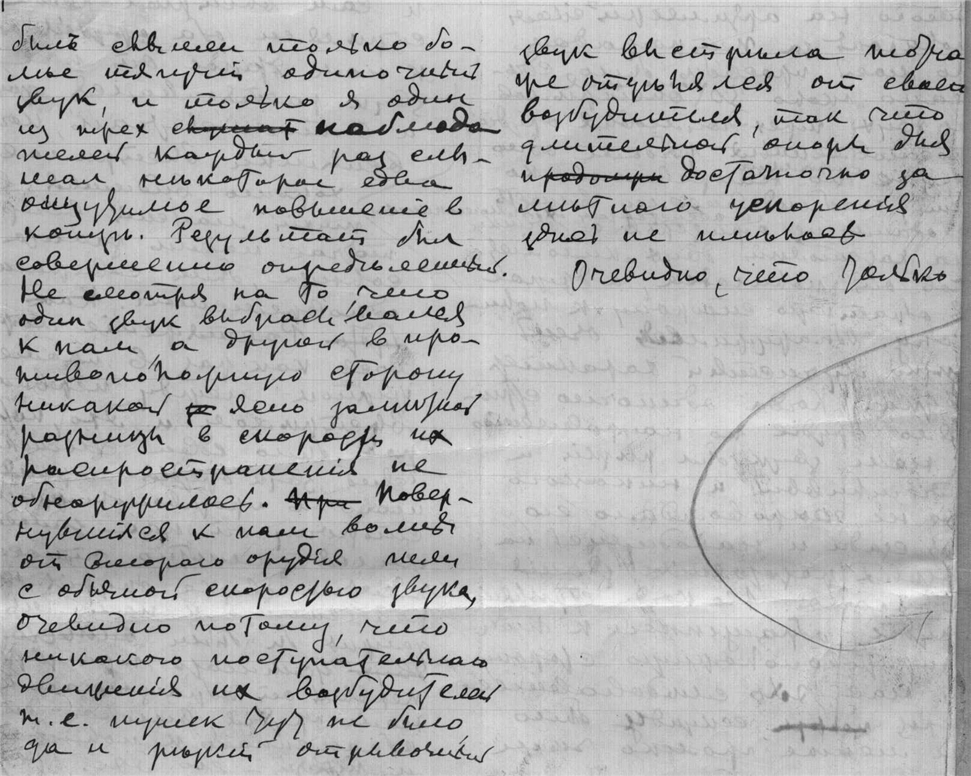 былъ слышен только бо-
лѣе тягучій одиночный
звук, и только я один
из трех слышат наблюда
телей каждый раз слы-
шал нѣкоторое едва
ощузимое повышеніе в
концѣ. Результат был
совершенно опредѣленный.
Не смотря на то, что
один звук выбрасывался
к нам, а другой в про-
тивоположную сторону
никакой ясно замѣтной
разницы в скорости их
распространенія не
обнаружилось. При Повер-
нувшіяся к нам волны
от второго орудія шли
с обычной скоростью звука,
очевидно потому, что
никакого поступательнаго
движенія их возбудителей
т.е. пушек тут не было,
да и рѣзкій отрывочный
звук выстрѣла тотча
же отрывался от своего
возбудителя, так что
длительной опоры для
достаточно за
мѣтного ускоренія
здѣсь не имѣлось
Очевидно, что только